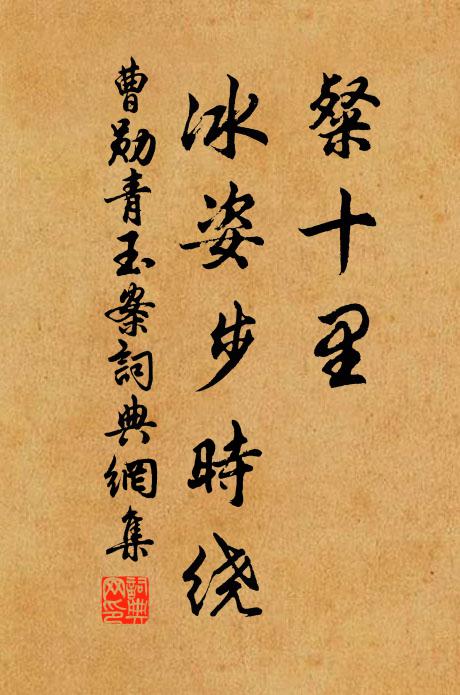 粲十里
冰姿步時绕
曹勛青玉案詞典網集
詞典
网印